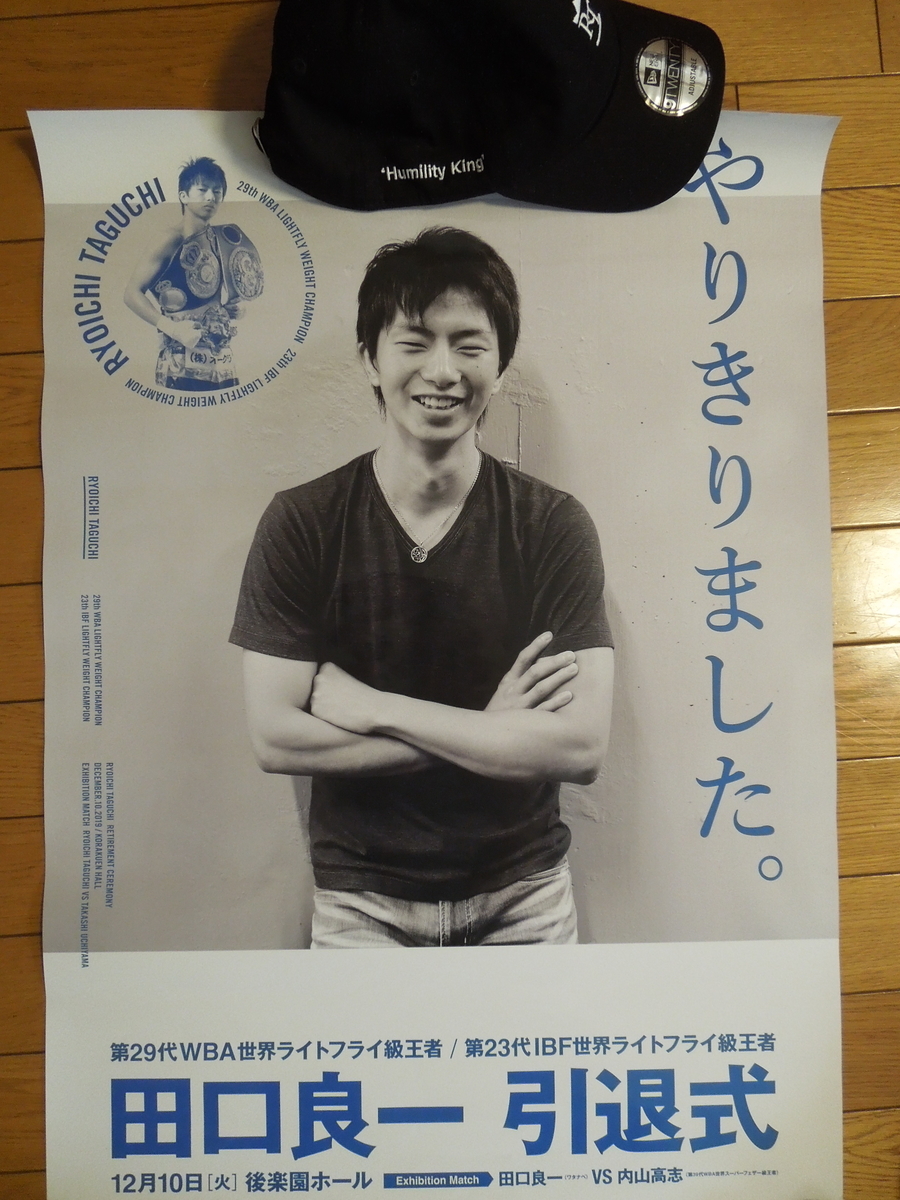 RT
9TWENTY
ADJUSTABLE
'Humility King'
やりきりました。
RYOICHI TAGUCHI
29th WBA LIGHTFLY WEIGHT CHAMPION
23th IBF LIGHTFLY WEIGHT CHAMPION
RYOICHI TAGUCHI
29th WBA LIGHTFLY WEIGHT CHAMPION
23th IBF LIGHTFLY WEIGHT CHAMPION
RYOICHI TAGUCHI RETIREMENT CEREMONY
DECEMBER.10.2019 / KORAKUEN HALL
EXHIBITION MATCH RYOICHI TAGUCHI VS TAKASHI UCHIYAMA
第29代WBA世界ライトフライ級王者 / 第23代IBF世界ライトフライ級王者
田口良一 引退式
12月10日[火] 後楽園ホール Exhibition Match 田口良一(ワタナベ) VS 内山高志